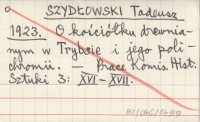 SZYDŁOWSKI Tadeusz
1923. O kościółku drewnia-
nym w Trybsie i jego poli-
chromii. — Prace Komis. Hist.
Sztuki 3: XVI–XVII.